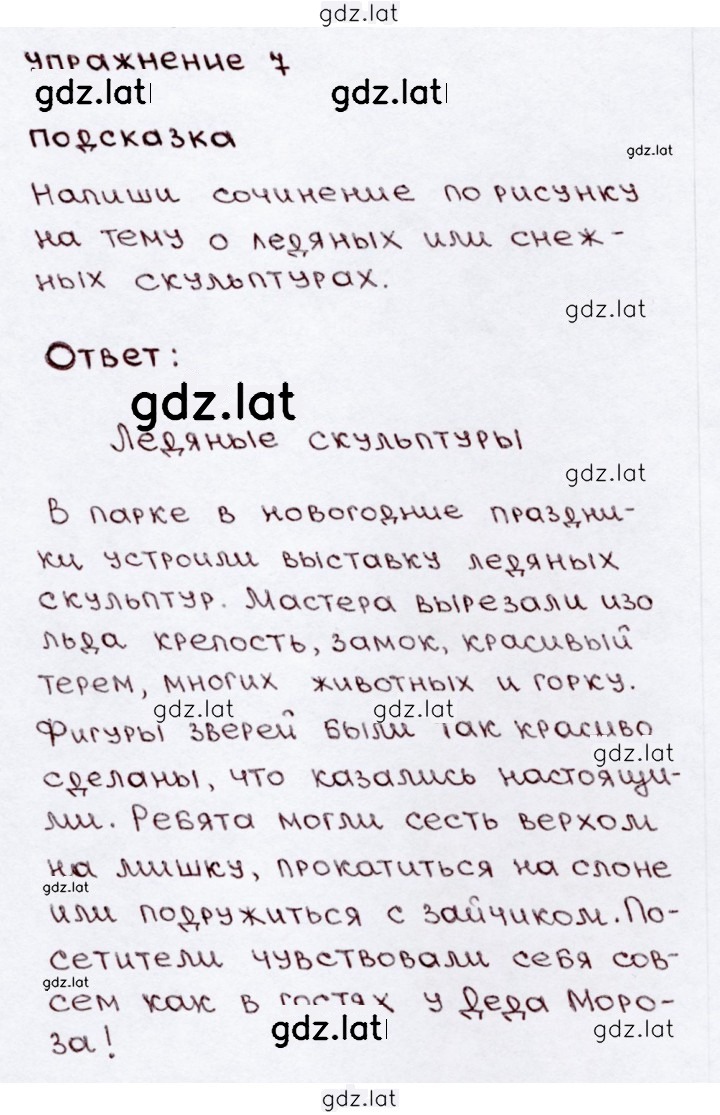 gdz.lat
упражнение 7
gdz.lat gdz.lat
подсказка
gdz.lat
Напиши сочинение по рисунку
на тему о ледяных или снеж-
ных скульптурах.
gdz.lat
Ответ:
gdz.lat
Ледяные скульптуры
gdz.lat
В парке в новогодние праздни-
ки устроили выставку ледяных
скульптур. Мастера вырезали изо
льда крепость, замок, красивый
терем, многих животных и горку.
gdz.lat gdz.lat
Фигуры зверей были так красиво
gdz.lat
сделаны, что казались настоящи-
ми. Ребята могли сесть верхом
на мишку, прокатиться на слоне
gdz.lat
или подружиться с зайчиком. По-
сетители чувствовали себя сов-
gdz.lat
сем как в гостях у Деда Моро-
gdz.lat gdz.lat
за!
gdz.lat